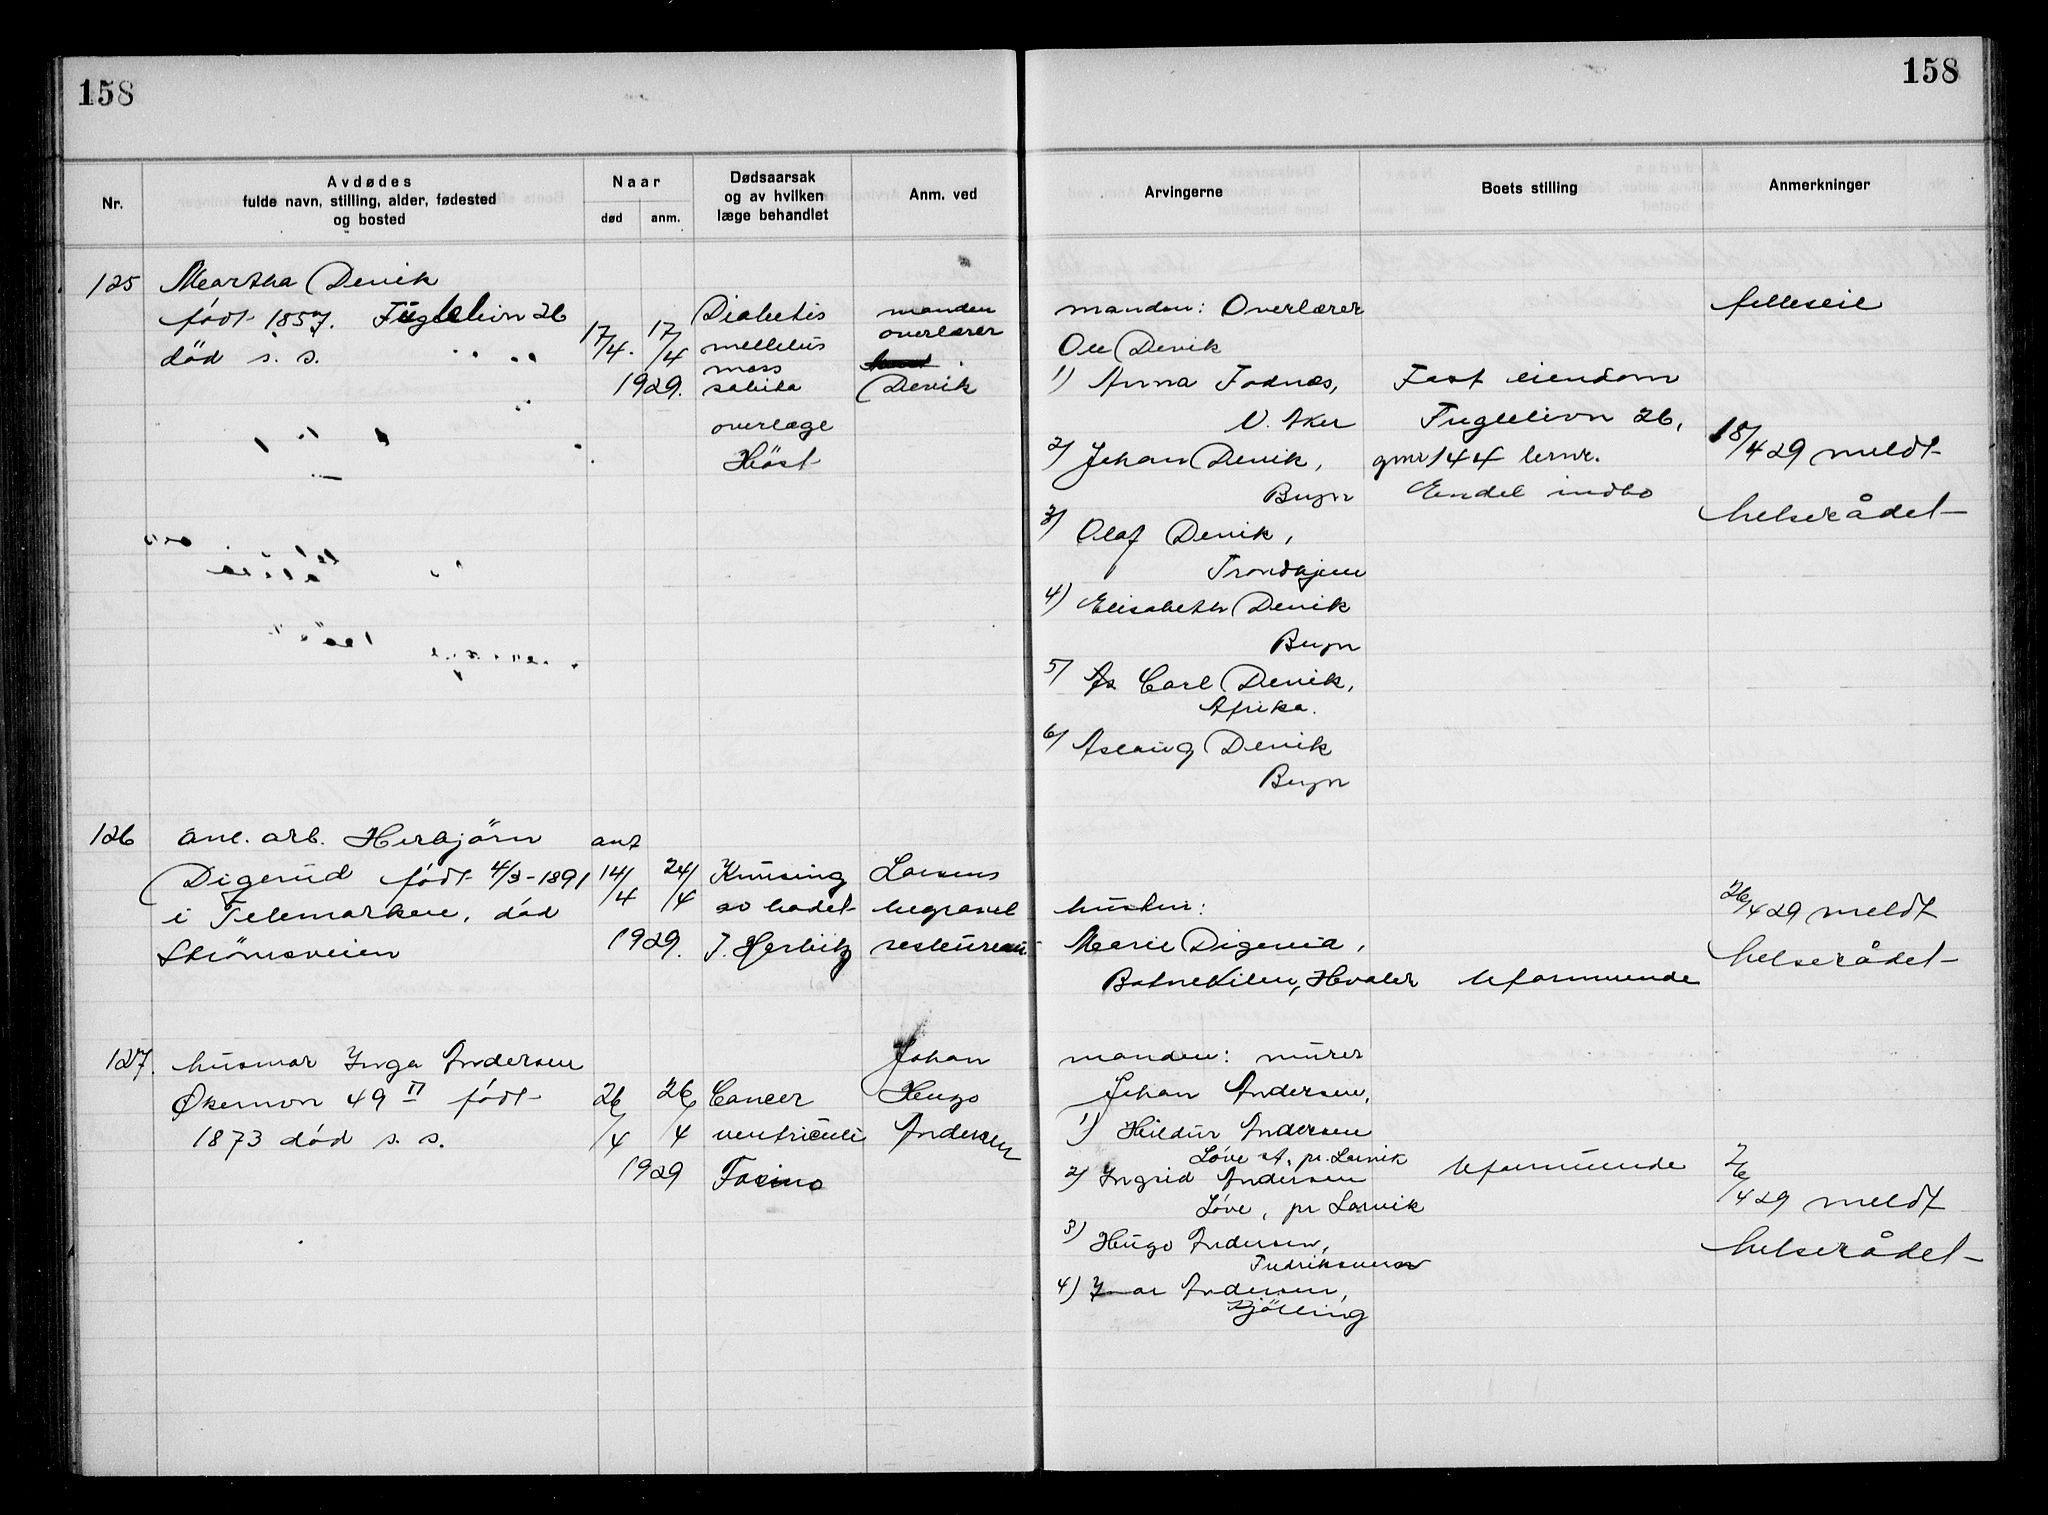 158
158
Nr.
Avdødes
fulde navn, stilling, alder, fødested
og bosted
Naar
død
anm.
Dødsaarsak
og av hvilken
læge behandlet
Anm. ved
Arvingerne
Boets stilling
Anmerkninger
125
Martha Devik
født 1857. Fuglelivn 26
död s. s.
17/4.
17/4
1929.
Diabetis
mellitus
overlæge
Høst
manden
overlærer
Devik
manden: Overlærer
Ole Devik
1) Anna Fodnæs,
V. Aker
2) Johan Devik,
Bugn
3) Olaf Devik,
Trondhjem
4) Elisabeth Devik
Bugn
5) Carl Devik,
Afrika.
6) Aslaug Devik
Bugn
Fast eiendom
Fuglelivn 26,
gnr 144 brnr.
Endel indbo
felleseie
18/4 29 meldt
helserådet
126
anl. arb. Herbjörn
Digerud født 4/3-1891
i Telemarken, död
Strömsveien
ant
14/4
24/4
1929.
Knusing
av hodet
J. Herbitz
Larsens
begravel
sesbureau
hustru:
Marie Digerud,
Botnekilen, Hvaler
Uformuende
26/4 29 meldt
helserådet
127.
husmor Inga Andersen
Økernvn 49 II født
1873 död s. s.
26/4
26/4
1929
Cancer
ventriculi
Johan
Hugo
Andersen
manden: murer
Johan Andersen,
1) Hildur Andersen
Løve st, pr. Larvik
2) Ingrid Andersen
Løve, pr Larvik
3) Hugo Andersen,
Fredriksvern
4) Ivar Andersen,
Kjölling
Uformuende
26/4 29 meldt
helserådet